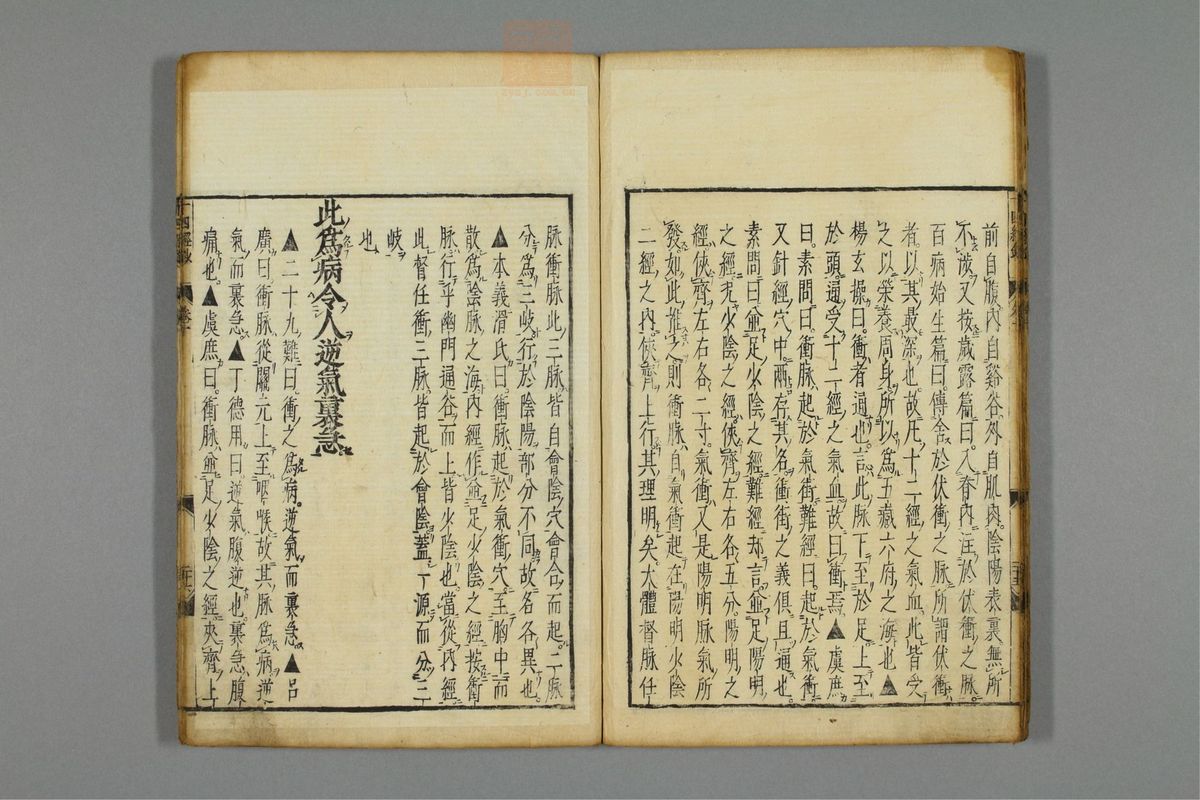 前自腹內自谿谷外自肌肉陰陽表裏無所
不涉又按歲露篇曰入脊內注於伏衝之脉
百病始生篇曰傳舍於伏衝之脉所謂伏衝
者以其最深也故凡十二經之氣血此皆受
之以榮養周身所以爲五臟六府之海也▲
楊玄操曰衝者通也言此脉下至於足上至
於頭通受十二經之氣血故曰衝焉▲虞庶
曰素問曰衝脉起於氣街難經曰起於氣衝
又針經穴中兩存其名衝街之義俱且通也
素問曰並足少陰之經難經却言並足陽明
之經况少陰之經俠齊左右各五分陽明之
經俠齊左右各二寸氣衝又是陽明脉氣所
發如此推之則衝脉自氣衝起在陽明少陰
二經之內俠齊上行其理明矣大體督脉任
脉衝脉此三脉皆自會陰穴會合而起二脉
分爲三岐行於陰陽部分不同故名各異也
▲本義滑氏曰衝脉起於氣衝穴至胸中而
散爲陰脉之海內經作並足少陰之經按衝
脉行乎幽門通谷而上皆少陰也當從內經
此督任衝三脉皆起於會陰蓋一源而分三
岐
也
此爲病令人逆氣裏急
▲二十九難曰衝之爲病逆氣而裏急▲呂
廣曰衝脉從關元上至咽喉故其脉爲病逆
氣而裏急▲丁德用曰逆氣腹逆也裏急腹
痛也▲虞庶曰衝脉並足少陰之經夾齊上